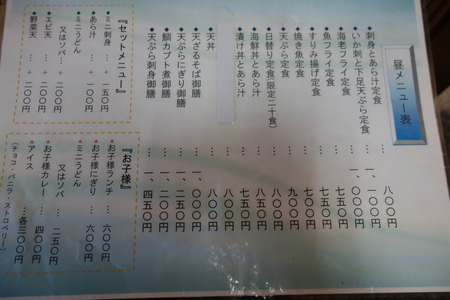 昼メニュー表
◆刺身とあら汁定食 … 八〇〇円
◆いか刺と下足天ぷら定食 … 一、一〇〇円
◆海老フライ定食 … 一、〇〇〇円
◆魚フライ定食 … 七五〇円
◆すりみ揚げ定食 … 七五〇円
◆焼き魚定食 … 九〇〇円
◆天ぷら定食
◆日替り定食(限定二十食)
◆海鮮丼とあら汁
◆漬け丼とあら汁
◆天丼 … 八〇〇円
◆天ざるそば御膳 … 一、〇〇〇円
◆天ぷらにぎり御膳 … 一、二五〇円
◆鯛カブト煮御膳 … 一、二〇〇円
◆天ぷら刺身御膳 … 一、四五〇円
『セットメニュー』
◆ミニ刺身 … +一五〇円
◆あら汁 … +一〇〇円
◆ミニうどん
又はソバ … +二〇〇円
◆エビ天 … +二〇〇円
◆野菜天 … +一〇〇円
『お子様』
◆お子様ランチ … 六〇〇円
◆お子様にぎり … 六〇〇円
◆ミニうどん
又はソバ … 二五〇円
◆お子様カレー … 四〇〇円
◆アイス … 各三〇〇円
(チョコ・バニラ・ストロベリー)